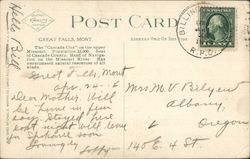 Hello Bill
POST CARD
GREAT FALLS, MONT.
The "Cascade City" on the upper
Missouri. Population 25,000 Seat
of Cascade County. Head of Naviga-
tion on the Missouri River. Has
unsurpassed natural resources of all
kinds.
BILLIN
R.P.O.
Great Falls, Mont
Dear Mother. Will
be home in few
days. Stayed here
last night will leave
for Spokane soon
Mrs. M. V. Bilyeu
Albany,
Oregon
140 E. 4 St.